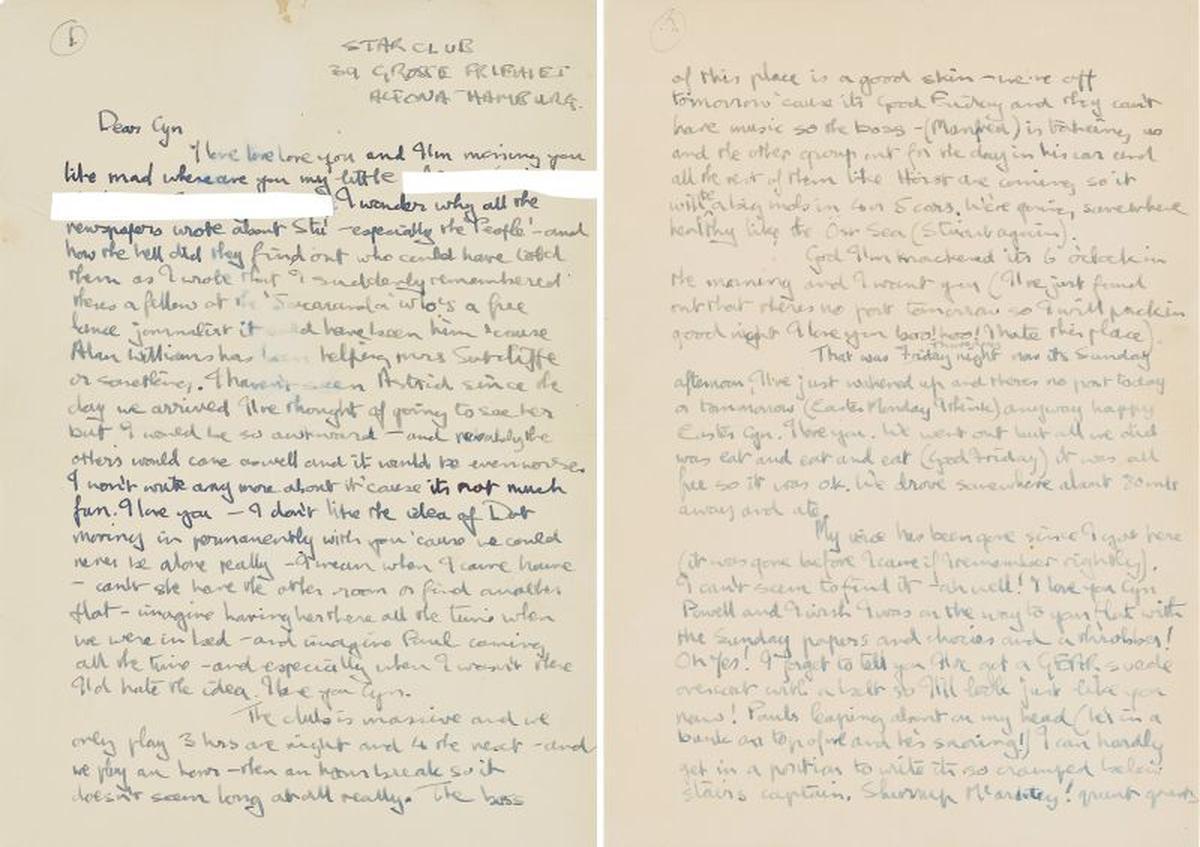 1
STAR CLUB
39 GROSSE FREIHEIT
ALTONA HAMBURG.
Dear Cyn
I love love love you and I'm missing you
like mad where are you my little
I wonder why all the
newspapers wrote about Stu - especially the 'People' - and
how the hell did they find out who could have told
them as I wrote that I suddenly remembered
theres a fellow at the 'Jacaranda' who's a free
lance journalist it could have been him 'cause
Alan Williams has been helping mrs Sutcliffe
or something. I haven't seen Astrid since the
day we arrived I've thought of going to see her
but I would be so awkward - and probably the
others would come aswell and it would be even worse.
I won't write any more about it 'cause its not much
fun. I love you - I don't like the idea of Dot
moving in permanently with you 'cause we could
never be alone really - I mean when I come home
- can't she have the other room or find another
flat - imagine having her there all the time when
we were in bed - and imagine Paul coming
all the time - and especially when I wasn't there
I'd hate the idea. I love you Cyn.
The club is massive and we
only play 3 hrs one night and 4 the next - and
we play an hour - then an hours break so it
doesn't seem long at all really. The boss
of this place is a good skin - we're off
tomorrow 'cause its Good Friday and they can't
have music so the boss - (Manfred) is taking us
and the other group out for the day in his car and
all the rest of them like Horst are coming so it
will be a big mob in 4 or 5 cars. We're going somewhere
healthy like the Ost Sea (Stuart again).
God I'm knackered its 6 o'clock in
the morning and I want you (I've just found
out that there's no post tomorrow so I will pack in
good night I love you boo! hoo! I hate this place).
That was Friday night now its Sunday
afternoon, I've just wakened up and theres no post today
or tommorrow (Easter Monday I think) anyway happy
Easter Cyn. I love you. We went out but all we did
was eat and eat and eat (Good Friday) it was all
free so it was ok. We drove somewhere about 30 mls
away and ate.
My voice has been gone since I got here
(it was gone before I came if I remember rightly).
I can't seem to find it - ah well! I love you Cyn
Powell and I wish I was on the way to your flat with
the Sunday papers and chocies and a throbber!
Oh Yes! I forgot to tell you I've got a GEAR suede
overcoat with a belt so I'll look just like you
now! Pauls leaping about on my head (he's in a
bunk on top of me and he's snoring!) I can hardly
get in a position to write its so cramped below
stairs captain. Shurrup Mcartney! grunt grunt